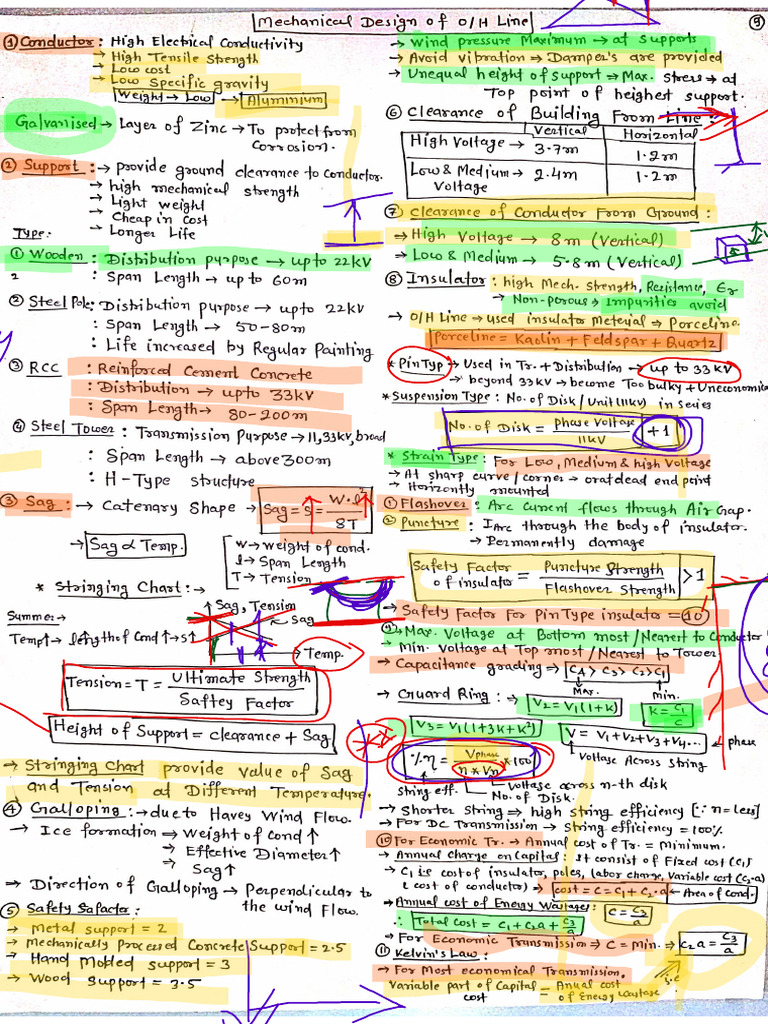 Mechanical Design of O/H Line
9
① Conductor : High Electrical Conductivity
→ High Tensile Strength
→ Low cost
→ Low Specific gravity
Weight → Low → Aluminium
Galvanised → Layer of Zinc → To protect from
Corrosion.
② Support : → provide ground clearance to conductor.
→ high mechanical strength
→ Light weight
→ Cheap in cost
→ Longer Life
Type:
① Wooden : Distribution purpose → up to 22kV
: Span Length → up to 60m
② Steel Pole : Distribution purpose → upto 22kV
: Span Length → 50-80m
: Life increased by Regular Painting
③ RCC : Reinforced Cement Concrete
: Distribution → upto 33kV
: Span Length → 80-200m
④ Steel Tower : Transmission Purpose → 11,33kV, broad
: Span Length → above 300m
: H-Type structure
③ Sag : → Catenary Shape → Sag = S = W·l² / 8T
→ Sag ∝ Temp.
W → Weight of cond.
l → Span Length
T → Tension
* Stringing Chart : →
Sag, Tension
Sag
Temp.
Summer →
Temp↑ → length of Cond↑ → S↑
Tension = T = Ultimate Strength / Saftey Factor
Height of Support = clearance + Sag
→ Stringing Chart provide value of Sag
and Tension at Different Temperature.
④ Galloping : → due to Havey Wind Flow.
→ Ice formation ⇒ Weight of Cond ↑
⇒ Effective Diameter ↑
⇒ Sag ↑
→ Direction of Galloping → Perpendicular to
the wind Flow.
⑤ Safety Safacter :
→ Metal support = 2
→ Mechanically Processed Concrete Support = 2.5
→ Hand Molded support = 3
→ Wood support = 3.5
→ Wind pressure Maximum → at Supports
→ Avoid vibration → Damper's are provided
→ Unequal height of Support → Max. Stress → at
Top point of heighest support.
⑥ Clearance of Building From Line :
Vertical Horizontal
High Voltage → 3.7m 1.2m
Low & Medium → 2.4m 1.2m
Voltage
⑦ Clearance of Conductor From Ground :
→ High Voltage → 8m (Vertical)
→ Low & Medium → 5.8m (Vertical)
⑧ Insulator : high Mech. Strength, Resistance, Er
→ Non-porous → Impurities avoid
→ O/H Line → used insulator Meterial → Porceline.
Porceline = Kaolin + Feldspar + Quartz
* Pin Typ → Used in Tr. + Distribution → up to 33kV
→ beyond 33kV → become Too bulky + Uneconomica
* Suspension Type : No. of Disk / Unit (11kV) in series
No. of Disk = Phase Voltage / 11kV + 1
* Strain Type : For Low, Medium & high Voltage
→ At sharp curve / corner → or at dead end point
→ Horizontly mounted
① Flashover : Arc current flows through Air Gap.
② Puncture : I Arc through the body of insulator.
→ Permanently damage
Safety Factor of insulator = Puncture Strength / Flashover Strength > 1
→ Safety Factor For Pin Type insulator = 10
⑨ → Max. Voltage at Bottom most / Nearest to Conductor
→ Min. Voltage at Top most / Nearest to Tower
→ Capacitance grading ⇒ C4 > C3 > C2 > C1
Max. min.
→ Guard Ring : → V2 = V1(1+k) k = C1/C
V3 = V1(1+3k+k²) V = V1+V2+V3+V4... ← phase
Voltage Across String
%η = Vphase / n * Vn * 100
string eff. No. of Disk. Voltage across n-th disk
→ Shorter String ⇒ high string efficiency [∵ n = less]
→ For DC Transmission → String efficiency = 100%
⑩ For Economic Tr. → Annual cost of Tr. = Minimum.
→ Annual Charge on Capital : It consist of Fixed cost (C1)
→ C1 is cost of insulator, poles, labor charge, Variable cost (C2·a)
(cost of conductor) → cost = C = C1 + C2·a ← Area of cond.
→ Annual cost of Energy Wastages : C = C3/a
∴ Total Cost = C1 + C2a + C3/a
→ For Economic Transmission → C = Min. ⇒ C2a = C3/a
⑪ Kelvin's Law :
→ For Most economical Transmission.
Variable part of Capital cost = Anual cost of Energy Wastage